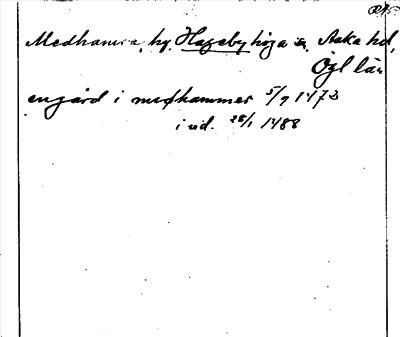 Medhamra, by, Hageby höga sn, Aska hd,
Ögl län
en gård i medhammer 5/9 1473
i ud. 28/1 1488